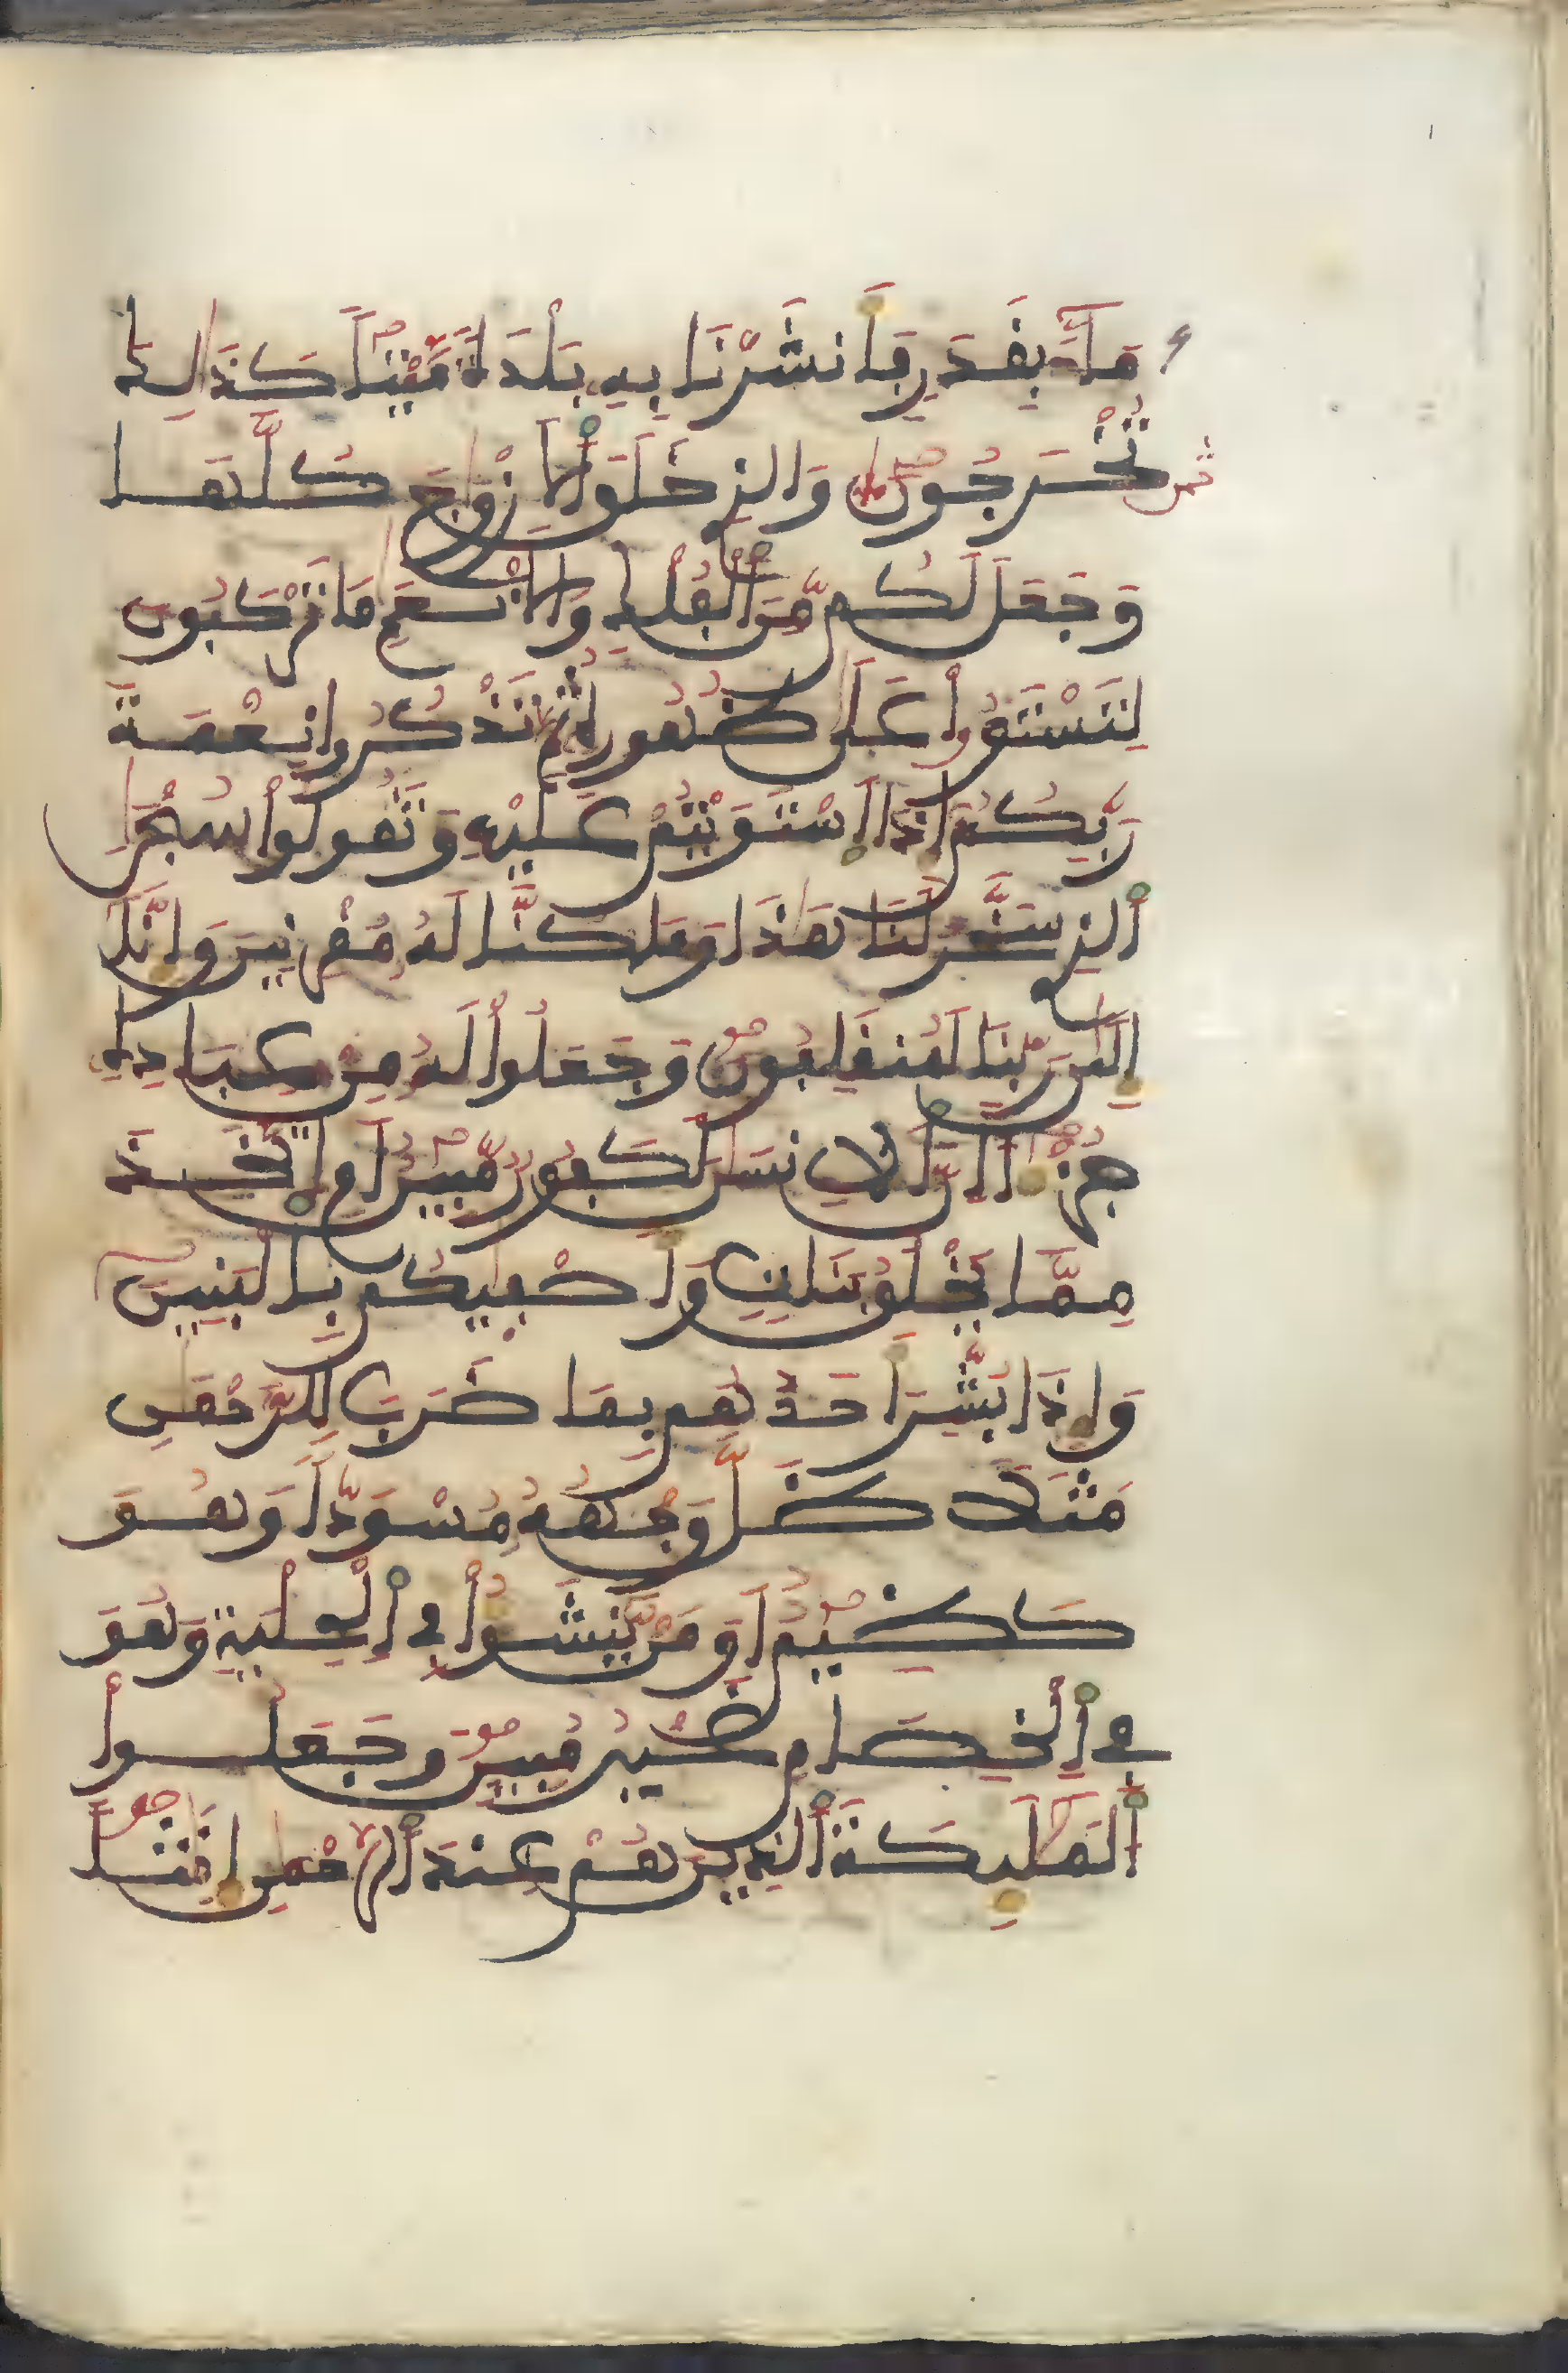 مَآءَۢ بِقَدَرٖ فَأَنشَرْنَا بِهِۦ بَلْدَةٗ مَّيْتاٗ كَذَٰلِكَ
ثمن
تُخْرَجُونَ وَالذِے خَلَقَ أَلَازْوَٰجَ كُلَّهَا
وَجَعَلَ لَكُم مِّنَ أَلْفُلْكِ وَالَانْعَٰمِ مَا تَرْكَبُونَ
لِتَسْتَوُۥاْ عَلَىٰ ظُهُورِهِۦ ثُمَّ تَذْكُرُواْ نِعْمَةَ
رَبِّكُمُۥٓ إِذَا اَسْتَوَيْتُمْ عَلَيْهِ وَتَقُولُواْ سُبْحَٰنَ
أَلذِے سَخَّرَ لَنَا هَٰذَا وَمَا كُنَّا لَهُۥ مُقْرِنِينَ وَإِنَّآ
إِلَىٰ رَبِّنَا لَمُنقَلِبُونَ وَجَعَلُواْ لَهُۥ مِنْ عِبَادِهِۦ
جُزْءاً اِنَّ أَلِانسَٰنَ لَكَفُورٞ مُّبِينٌ اَمِ اِتَّخَذَ
مِمَّا يَخْلُقُ بَنَاتٖ وَأَصْفِيٰكُم بِالْبَنِينَ
وَإِذَا بُشِّرَ أَحَدُهُم بِمَا ضَرَبَ لِلرَّحْمَٰنِ
مَثَلاٗ ظَلَّ وَجْهُهُۥ مُسْوَدّاٗ وَهُوَ
كَظِيمٌ اَوَمَنْ يَّنشَؤُاْ فِے أِلْحِلْيَةِ وَهُوَ
فِے أِلْخِصَامِ غَيْرُ مُبِينٖ وَجَعَلُواْ
أَلْمَلَٰٓئِكَةَ أَلذِينَ هُمْ عِندَ أَلرَّحْمَٰنِ إِنَٰثاً